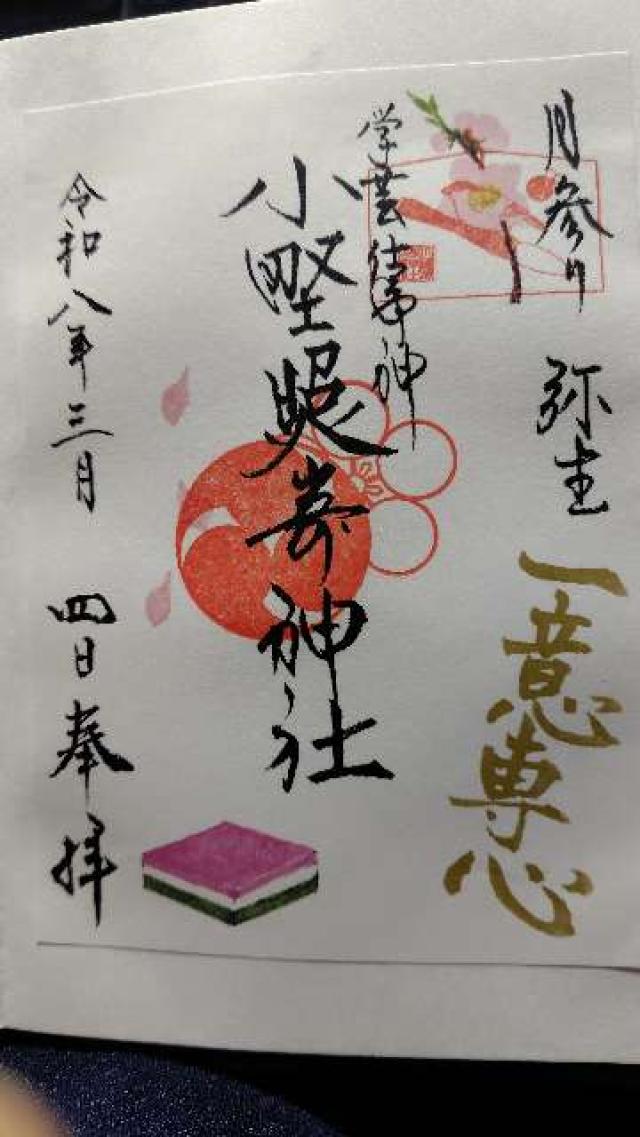 月参り 弥生
一意専心
学芸仕事神
小野照崎神社
令和八年三月 四日奉拝